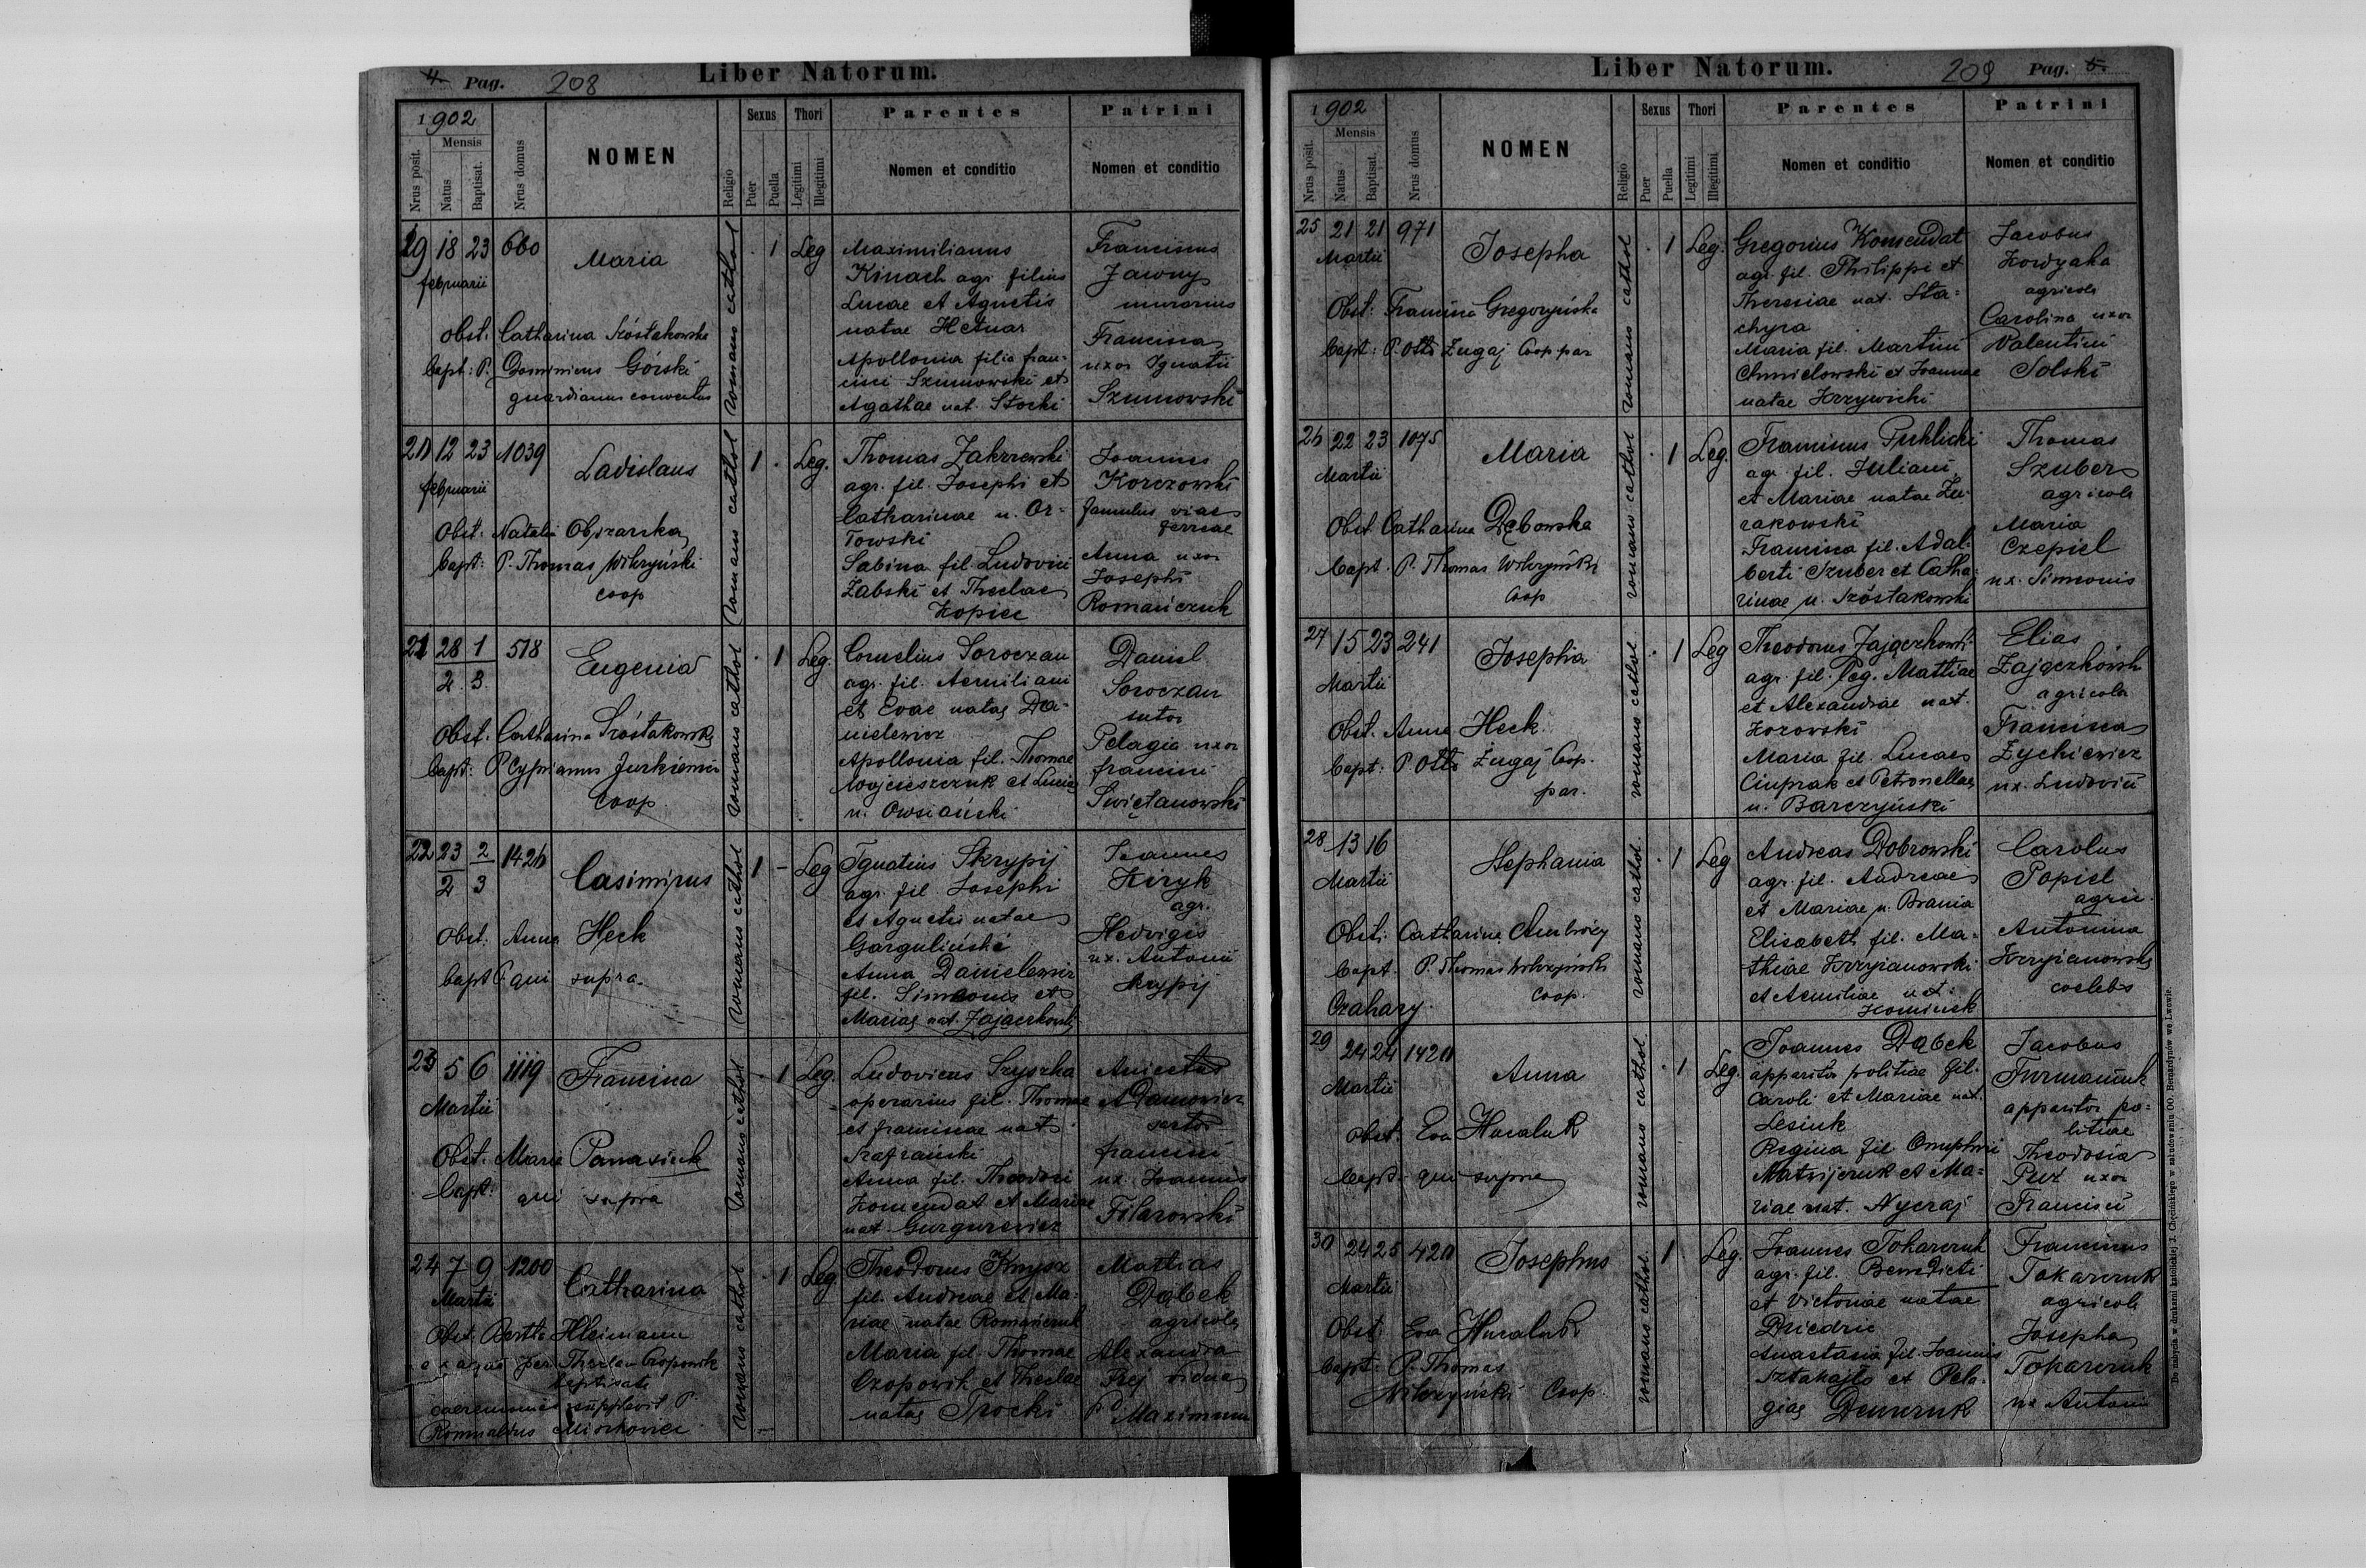 4. Pag. 208 Liber Natorum.
1902
Mensis
Nrus posit.
Natus
Baptisat.
Nrus domus
NOMEN
Religio
Sexus
Puer
Puella
Thori
Legitimi
Illegitimi
Parentes
Nomen et conditio
Patrini
Nomen et conditio
19 18 23 660
februarii
Maria
Obst. Catharina Szóstakowska
Bapt: P. Dominicus Górski
guardianus conventus
romano cathol
1 Leg
Maximilianus
Kinach agr. filius
Lucae et Agnetis
natae Hetnar
Apollonia filia fran-
cisci Szumowski et
Agathae nat. Stocki
Franciscus
Jawny
murarius
Francisca
uxor Ignatii
Szumowski
20 12 23 1039
februarii
Ladislaus
Obst: Natalia
Bapt: P. Thomas Wilczyński
coop
romano cathol
1 Leg.
Thomas Zakrzewski
agr. fil. Josephi et
Catharinae n. Or-
łowski
Sabina fil. Ludovici
Żabski et Theclae
Kopiec
Joannes
Korczowski
famulus viae
ferreae
Anna uxor
Josephi
Romańczuk
21 28 1 518
2 3
Eugenia
Obst. Catharina Szóstakowska
Bapt: P Cyprianus Jurkiewicz
Coop
romano cathol
1 Leg.
Cornelius Soroczan
agr. fil. Aemiliani
et Evae natae Da-
nielewicz
Apollonia fil. Thomae
Wojcieszczuk et Luciae
n. Owsiański
Daniel
Soroczan
sutor
Pelagia uxor
francisci
Swiętanowski
22 23 2 1426
2 3
Casimirus
Obst. Anna Heck
Bapt P. qui supra
romano cathol
1 - Leg
Ignatius Skrypij
agr. fil Josephi
et Agnetis natae
Garguliński
Anna Danielewicz
fil. Simeonis et
Mariae nat. Zajączkowski
Joannes
Kiryk
agr.
Hedvigis
ux. Antonii
Skrypij
23 5 6 1119
Martii
Francisca
Obst. Maria Panasiuk
Bapt. qui supra
romano cathol
1 Leg.
Ludovicus Szyszka
operarius fil. Thomae
et franciscae nat.
Szafrański
Anna fil. Theodori
Komendat et Mariae
nat. Gurgurewicz
Anicetus
Adamowicz
sartor
francisca
ux. Joannis
Filarowski
24 7 9 1200
Martii
Catharina
Obst. Bertha Kleimann
ex aqua per Theclam Czopowik
baptisata
caeremonias supplevit P.
Romualdus
romano cathol
1 Leg
Theodorus Knysz
fil. Andreae et Ma-
riae natae Romańczuk
Maria fil. Thomae
Czopowik et Theclae
natae Trocki
Mattias
Dąbek
agricola
Alexandra
vidua
Maximum
Liber Natorum. 209 Pag. 5.
1902
Mensis
Nrus posit.
Natus
Baptisat.
Nrus domus
NOMEN
Religio
Sexus
Puer
Puella
Thori
Legitimi
Illegitimi
Parentes
Nomen et conditio
Patrini
Nomen et conditio
25 21 21 971
Martii
Josepha
Obst: Francisca Gregoryńska
Bapt: P. Otto Żugaj Coop par
romano cathol
1 Leg.
Gregorius Komendat
agr. fil. Philippi et
Theresiae nat. Sta-
chyra
Maria fil. Martini
Chmielowski et Joannae
natae Krzywicki
Jacobus
agricola
Carolina uxor
Valentini
Solski
26 22 23 1075
Martii
Maria
Obst Catharina Dębowska
Bapt. P. Thomas Wilczyński
Coop
romano cathol
1 Leg.
Franciscus Puklicki
agr. fil. Juliani
et Mariae natae Żu-
rakowski
Francisca fil. Adal-
berti Szuber et Catha-
rinae n. Szóstakowski
Thomas
Szuber
agricola
Maria
Czepiel
ux. Simeonis
27 15 23 241
Martii
Josepha
Obst. Anna Heck.
Bapt: P Otto Żugaj Coop.
par.
romano cathol.
1 Leg
Theodorus Zajączkowski
agr. fil. Mattiae
et Alexandrae nat.
Kozowski
Maria fil. Lucae
Ciuprak et Petronellae
n. Barczyński
Elias
Zajączkowski
agricola
Francisca
Zychiewicz
ux. Ludovici
28 13 16
Martii
Stephania
Obst. Catharina Ambroży
Bapt. P. Thomas Wilczyński
Coop.
Czahary.
romano cathol.
1 Leg
Andreas Dobrowski
agr. fil. Andreae
et Mariae n. Brania
Elisabeth fil. Ma-
thiae Krzyżanowski
et Aemiliae nat.
Kominek
Carolus
Popiel
agric.
Antonina
Krzyżanowska
coelebs
29 24 24 1420
Martii
Anna
Obst. Eva Hucaluk
Bapt. qui supra
romano cathol
1 Leg.
Joannes Dąbek
apparitor politiae fil.
Caroli et Mariae nat.
Lesiuk
Regina fil Onuphrii
Matwijczuk et Ma-
riae nat. Nyczaj
Jacobus
Furmaniuk
apparitor po-
litiae
Theodosia
uxor
Francisci
30 24 25 420
Martii
Josephus
Obst Eva Hucaluk
Bapt: P. Thomas
Wilczyński Coop.
romano cathol.
1 Leg.
Joannes Tokarczuk
agr. fil. Benedicti
et Victoriae natae
Dziedzic
Anastasia fil. Joannis
Sztakajło et Pela-
giae Demczuk
Franciscus
Tokarczuk
agricola
Josepha
Tokarczuk
ux Antonii
Do nabycia w drukarni katolickiej J. Chęcińskiego w zabudowaniu OO. Bernardynów we Lwowie.